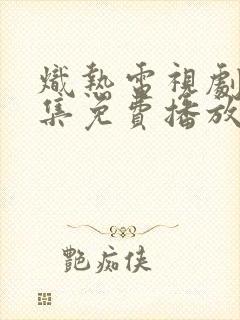 熾熱電視劇
集免費播放
艷痴俠